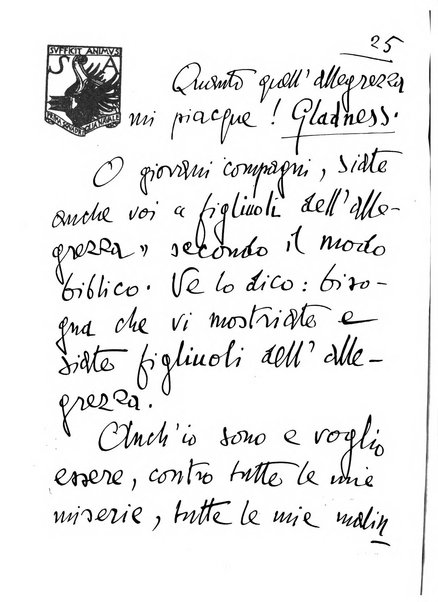 25
SVFFICIT ANIMVS
S A
Quanto quell'allegrezza
mi piacque! Gladness.
O giovani compagni, siate
anche voi "figliuoli dell'alle-
grezza" secondo il modo
biblico. Ve lo dico: biso-
gna che vi mostriate e
siate figliuoli dell'alle-
grezza.
Anch'io sono e voglio
essere, contro tutte le mie
miserie, tutte le mie malin